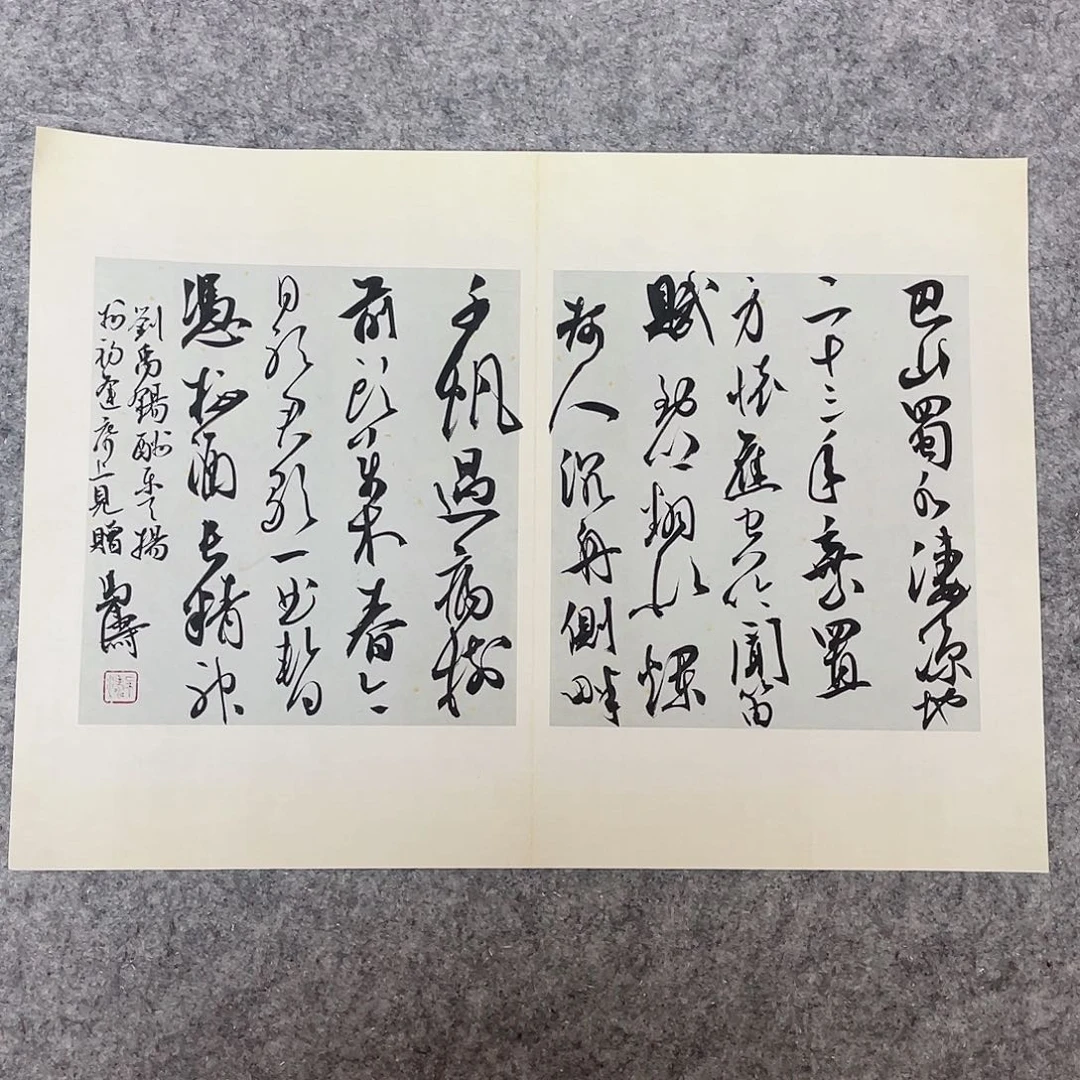 巴山蜀水淒涼地
二十三年棄置
身懷舊空吟聞笛
賦到鄉翻似爛
柯人沉舟側畔
千帆過病樹
前頭萬木春今
日聽君歌一曲暫
憑杯酒長精神
劉禹錫酬樂天揚
州初逢席上見贈